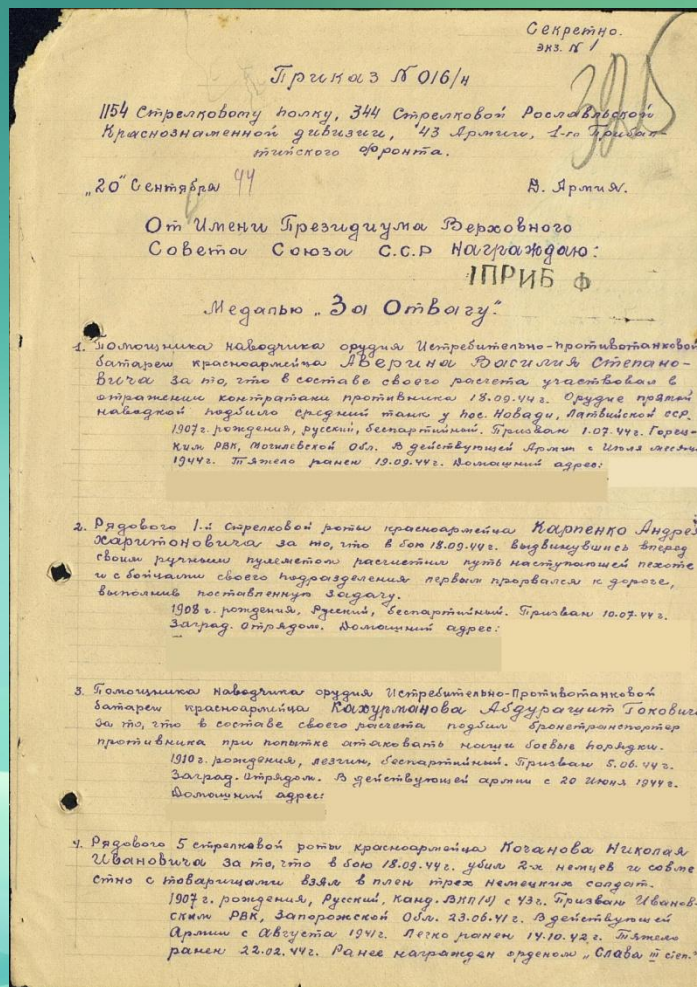 Секретно.
экз. № 1
3915
Приказ № 016/н
1154 Стрелковому полку, 344 Стрелковой Рославльской
Краснознаменной дивизии, 43 Армии, 1-го Прибал-
тийского фронта.
„20" Сентября 44 Д. Армия.
От Имени Президиума Верховного
Совета Союза С.С.Р Награждаю:
1ПРИБ Ф
Медалью „За Отвагу".
1. Помощника наводчика орудия Истребительно-противотанковой
батареи красноармейца Аверина Василия Степано-
вича за то, что в составе своего расчета участвовал в
отражении контратаки противника 18.09.44г. Орудие прямой
наводкой подбило средний танк у пос. Новади, Латвийской ССР.
1907г. рождения, русский, беспартийный. Призван 1.07.44г. Горец-
ким РВК, Могилевской Обл. В действующей Армии с Июля месяца
1944г. Тяжело ранен 19.09.44г. Домашний адрес:
2. Рядового 1-й стрелковой роты красноармейца Карпенко Андрея
Харитоновича за то, что в бою 18.09.44г. выдвинувшись вперед
своим ручным пулеметом расчистил путь наступающей пехоте
и с бойцами своего подразделения первым прорвался к дороге,
выполнив поставленную задачу.
1908г. рождения, Русский, беспартийный. Призван 10.07.44г.
Заград. отрядом. Домашний адрес:
3. Помощника наводчика орудия Истребительно-Противотанковой
батареи красноармейца Кахурманова Абдурашит Токович
за то, что в составе своего расчета подбил бронетранспортер
противника при попытке атаковать наши боевые порядки.
1910г. рождения, лезгин, беспартийный. Призван 5.06.44г.
Заград. отрядом. В действующей армии с 20 Июня 1944г.
Домашний адрес:
4. Рядового 5 стрелковой роты красноармейца Кочанова Николая
Ивановича за то, что в бою 18.09.44г. убил 2-х немцев и совме
стно с товарищами взял в плен трех немецких солдат.
1907г. рождения, Русский, канд. ВКП(б) с 43г. Призван Иванов-
ским РВК, Запорожской Обл. 23.06.41г. В действующей
Армии с Августа 1941г. Легко ранен 14.10.42г. Тяжело
ранен 22.02.44г. Ранее награжден орденом „Слава III степ."